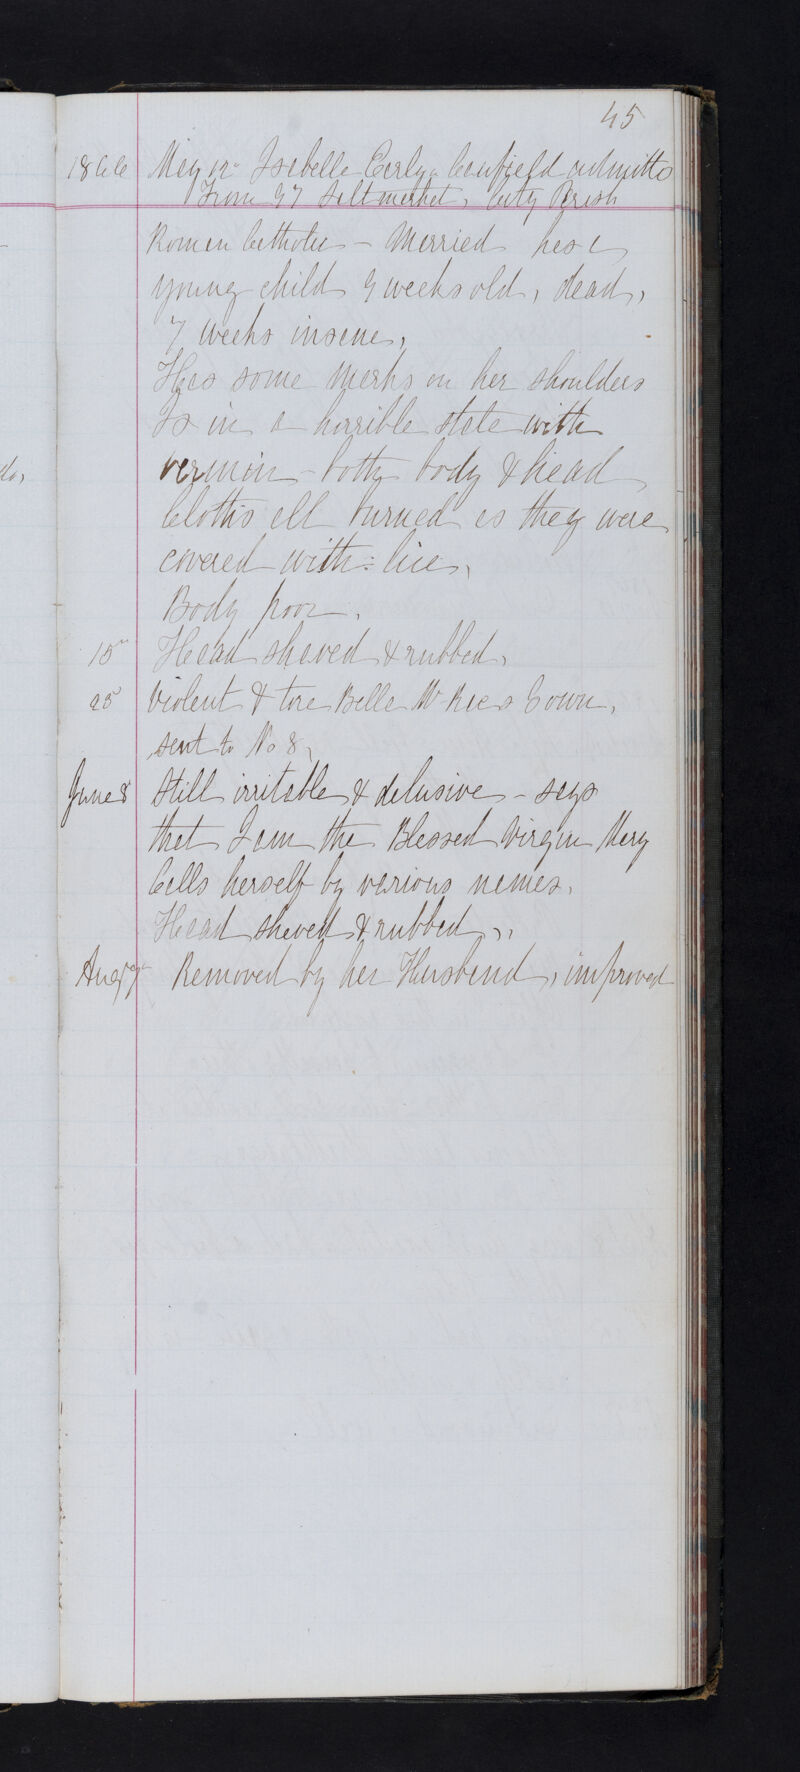 45
1866 May 12th Isabella Early or Canfield admitted
From 37 Saltmarket, City Parish
Roman Catholic - Married has a
young child 9 weeks old, dead,
7 weeks insane,
Has some marks on her shoulders
Is in a horrible state with
vermin - both body & head
Cloths all burned as they were
covered with lice,
Body poor,
15th Head shaved & rubbed,
25 Violent & tore Belle Gown,
sent to No 8,
June 8 Still irritable & delusive - says
that I am the Blessed Virgin Mary
Calls herself by various names,
Head shaved & rubbed,
Aug Removed by her Husband, improved